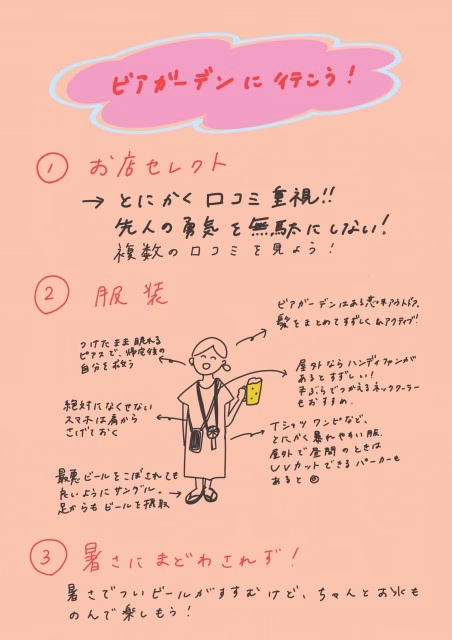 ビアガーデンに行こう!
① お店セレクト
→ とにかく口コミ重視!!
先人の勇気を無駄にしない!
複数の口コミを見よう!
② 服装
ビアガーデンはある意味アウトドア。
髪をまとめてすずしく&アクティブ!
つけたまま眠れる
ピアスで、帰宅後の
自分を救う
屋外ならハンディファンが
あるとすずしい!
手ぶらでつかえるネッククーラー
もおすすめ。
絶対になくせない
スマホは肩から
さげておく
Tシャツワンピなど、
とにかく暴れやすい服。
屋外で昼間のときは
UVカットできるパーカーも
あると◎
最悪ビールをこぼされても
良いようにサンダル。
足からもビールを摂取
③ 暑さにまどわされず!
暑さでついビールがすすむけど、ちゃんとお水も
のんで楽しもう!